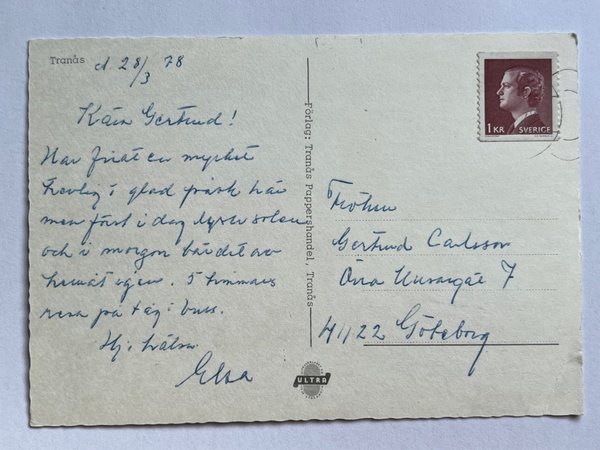 Tranås
d 28/3 78
Kära Gertrud!
Har firat en mycket
trevlig glad påsk här
men först i dag lyser solen
och i morgon bär det av
hemåt igen. 5 timmars
resa på tåg buss.
Hj. hälsn.
Elsa
Förlag: Tranås Pappershandel, Tranås
ULTRA
1 KR SVERIGE
Fröken
Gertrud Carlsson
7
411 22 Göteborg